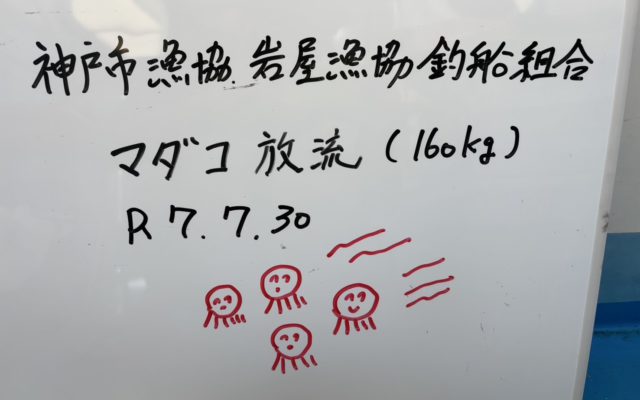 神戸市漁協.岩屋漁協釣船組合
マダコ放流(160kg)
R7.7.30